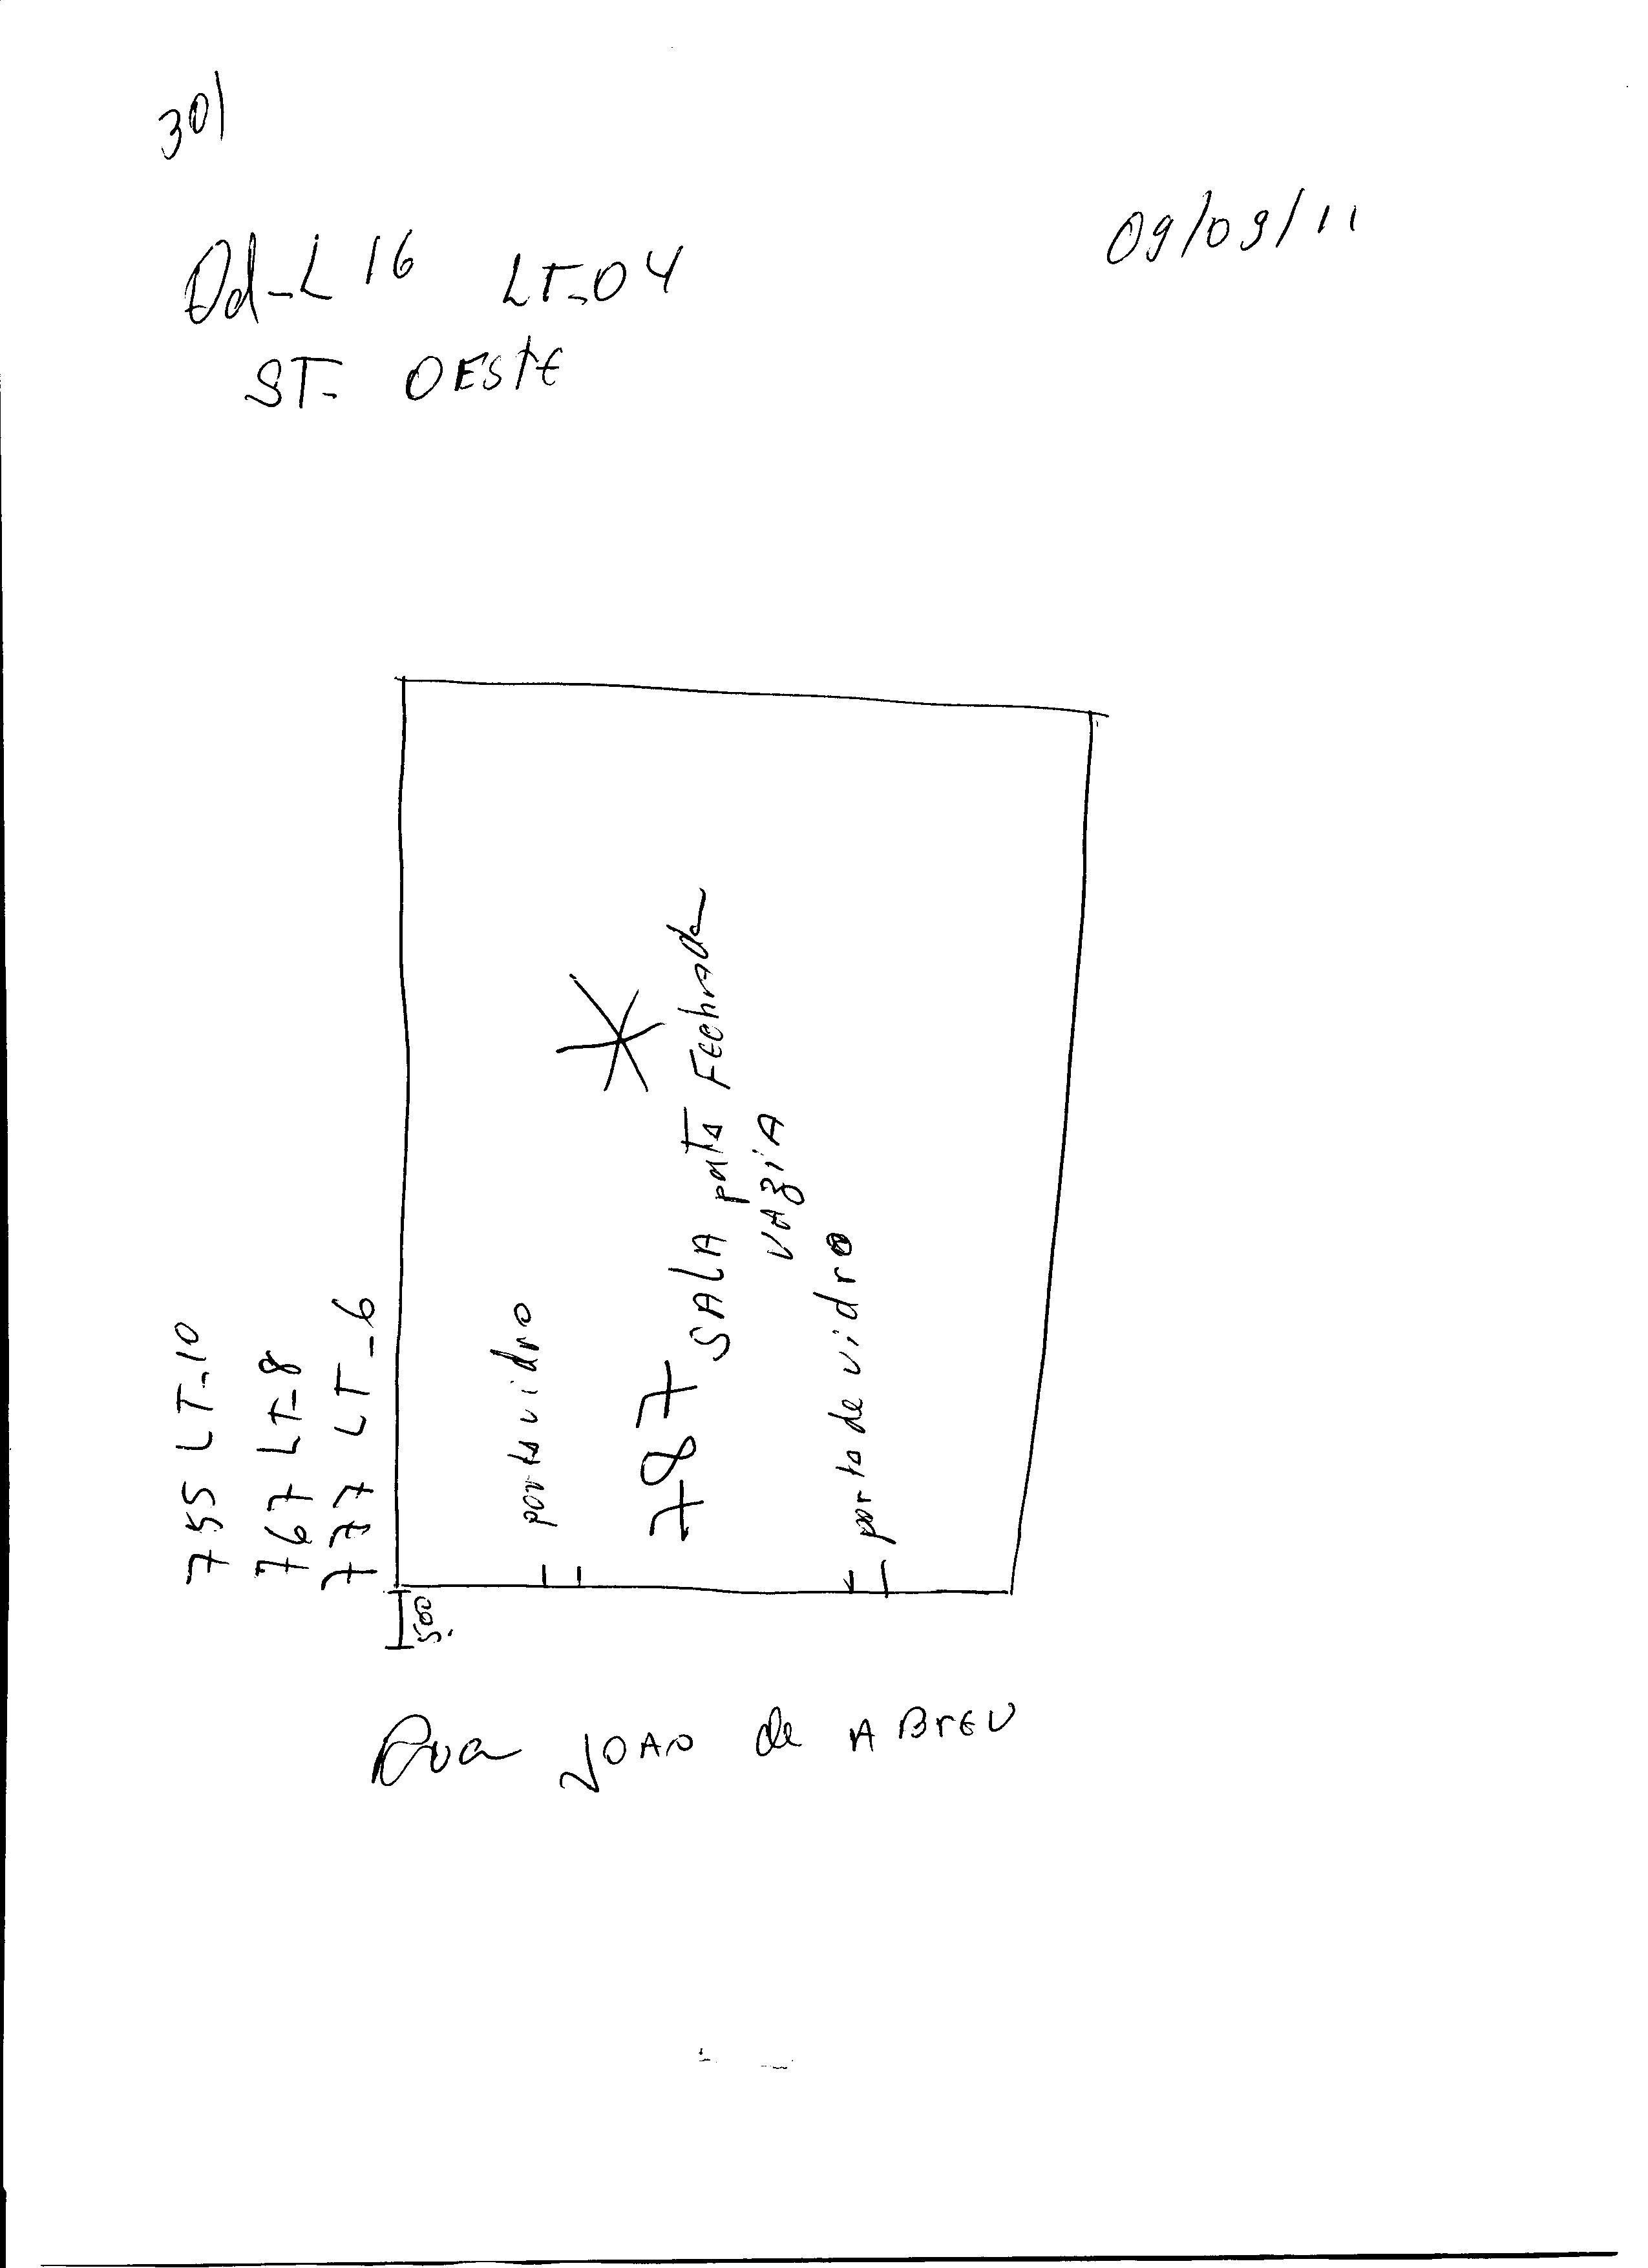 301
09/09/11
Qd-L 16 LT-04
ST- OESTE
755 LT-10
767 LT-8
777 LT-6
porta vidro
787 SALA porta Fechada
VAZIA
porta de vidro
500
Rua JOAO de ABreU